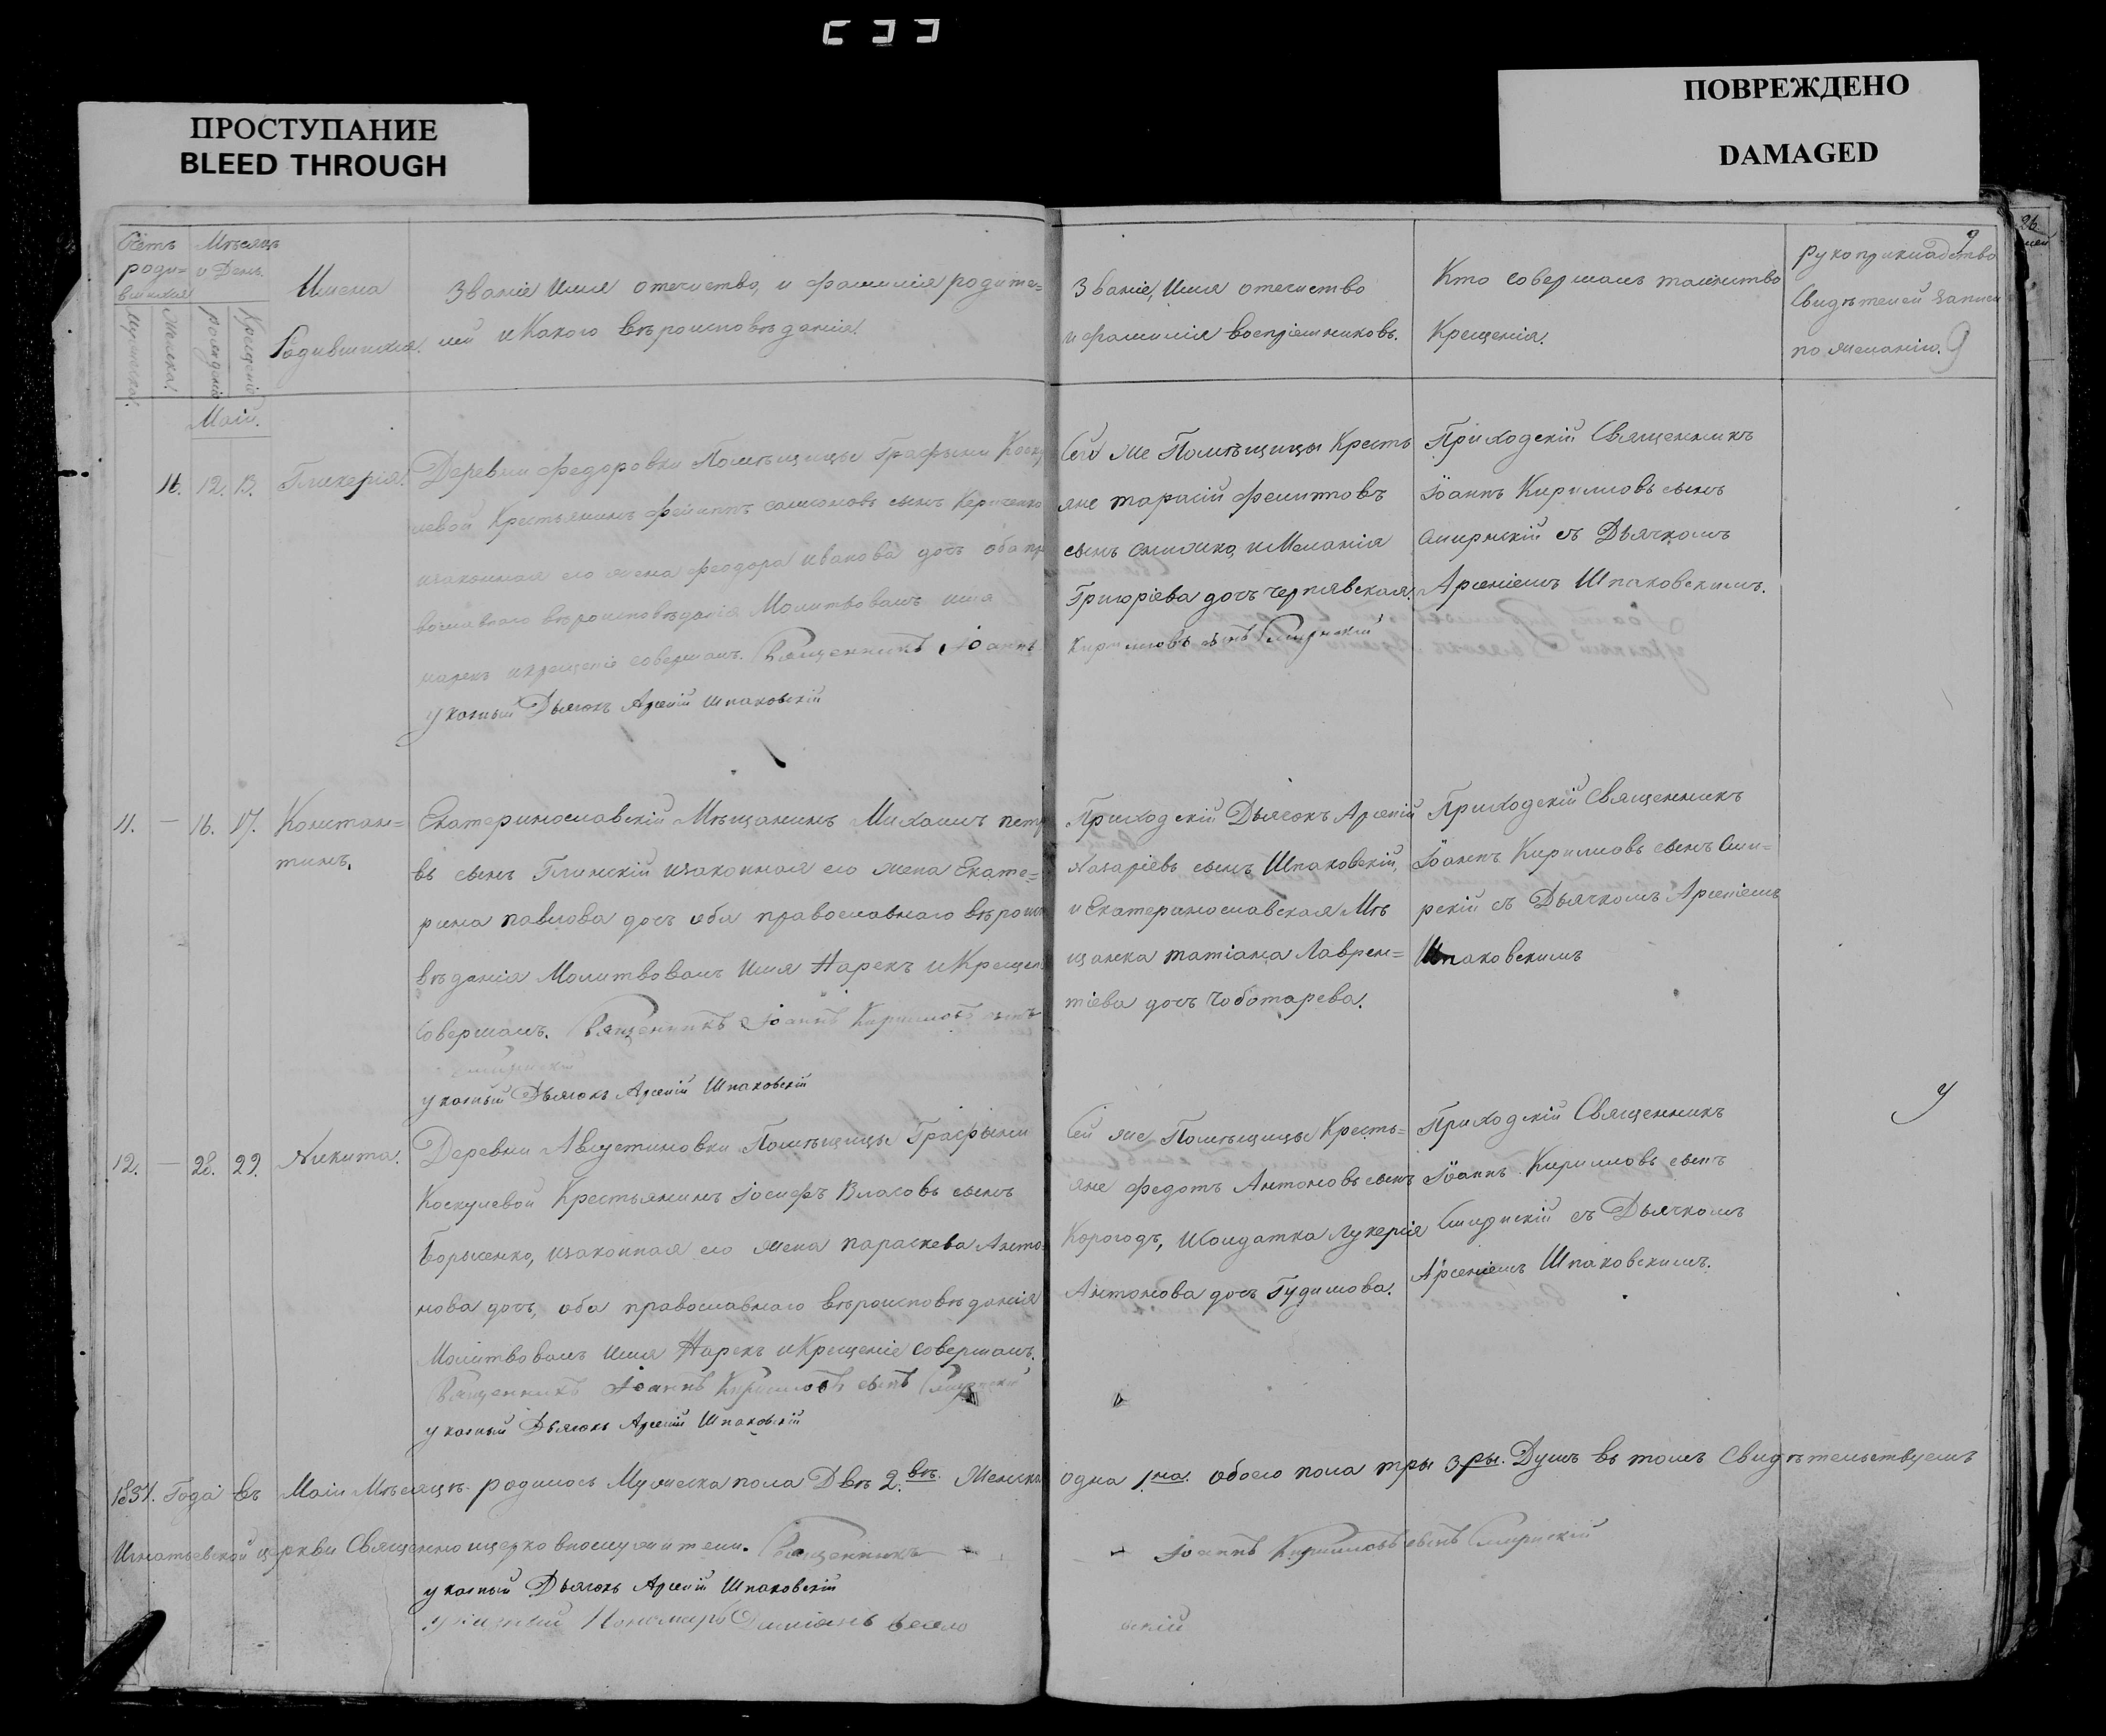 ПРОСТУПАНИЕ
BLEED THROUGH
ПОВРЕЖДЕНО
DAMAGED
Мѣсяцъ
роди=
и День.
вшихся
Имена
Родившихся.
Званіе Имя отечиство, и фамилія родите=
лей и Какого вѣроисповѣданія.
Званіе, Имя отечиство
и фамилія воспріемниковъ.
Кто совершалъ таинство
Крещенія.
Рукоприкладство
Свидѣтелей записи
по желанію.
9
26
Маій.
11.
12.
13.
Гликерія.
Деревни Федоровки Помѣщицы Графыни Коску
левой Крестьянинъ Филиппъ сынъ
изаконная его жена Феодора иванова дочъ оба пра
вославнаго вѣроисповѣданія Молитвовалъ имя
нарекъ икрещеніе совершалъ. Священникъ Іоаннъ
указный Дьячокъ Арсеній Шпаковскій
Сей же Помѣщицы Кресть
яне тарасій Филиповъ
сынъ и Меланія
Григоріева дочъ чернявская.
Кириловъ сынъ Смирнскій
Приходскій Священникъ
Іоаннъ Кириловъ сынъ
Смирнскій съ Дьячкомъ
Арсеніемъ Шпаковскимъ.
11.
—
16.
17.
Констан=
тинъ.
Екатеринославскій Мѣщанинъ Михаилъ петро
въ сынъ Глинскій изаконная его жена Екате=
рина павлова дочъ оба православнаго вѣроиспо
вѣданія Молитвовалъ Имя Нарекъ и Крещеніе
Совершалъ. Священникъ Іоаннъ Кириловъ сынъ
Смирнскій
указный Дьячокъ Арсеній Шпаковскій
Приходскій Дьячокъ Арсеній
Назаріевъ сынъ Шпаковскій,
и Екатеринославская Мѣ
щанка татіана Лаврен=
тіева дочъ Чоботарева.
Приходскій Священникъ
Іоаннъ Кириловъ сынъ Сми=
рскій съ Дьячкомъ Арсеніемъ
Шпаковскимъ
12.
—
28.
29.
Никита.
Деревни Августиновки Помѣщицы Графыни
Коскулевой Крестьянинъ Іосифъ Власовъ сынъ
Борисенко, изаконная его жена параскева Анто=
нова дочъ, оба православнаго вѣроисповѣданія
Молитвовалъ Имя Нарекъ и Крещеніе Совершалъ.
Священникъ Іоаннъ Кириловъ сынъ Смирнскій
указный Дьячокъ Арсеній Шпаковскій
Сей же Помѣщицы Кресть=
яне Федотъ Антоновъ сынъ
Корогодъ, Исолдатка Лукерія
Антонова дочъ Гудимова.
Приходскій Священникъ
Іоаннъ Кириловъ сынъ
Смирнскій съ Дьячкомъ
Арсеніемъ Шпаковскимъ.
1837. Года въ Маіи Мѣсяцѣ родилось Мужеска пола Двѣ 2.вѣ. Женска одна 1.на. обоего пола три 3.ри. Душъ въ томъ Свидѣтельствуемъ
Игнатьевской церкви Священно ицерковнослужители. Священникъ Іоаннъ Кириловъ сынъ Смирнскій
указный Дьячокъ Арсеній Шпаковскій
указный Пономарь Даміанъ